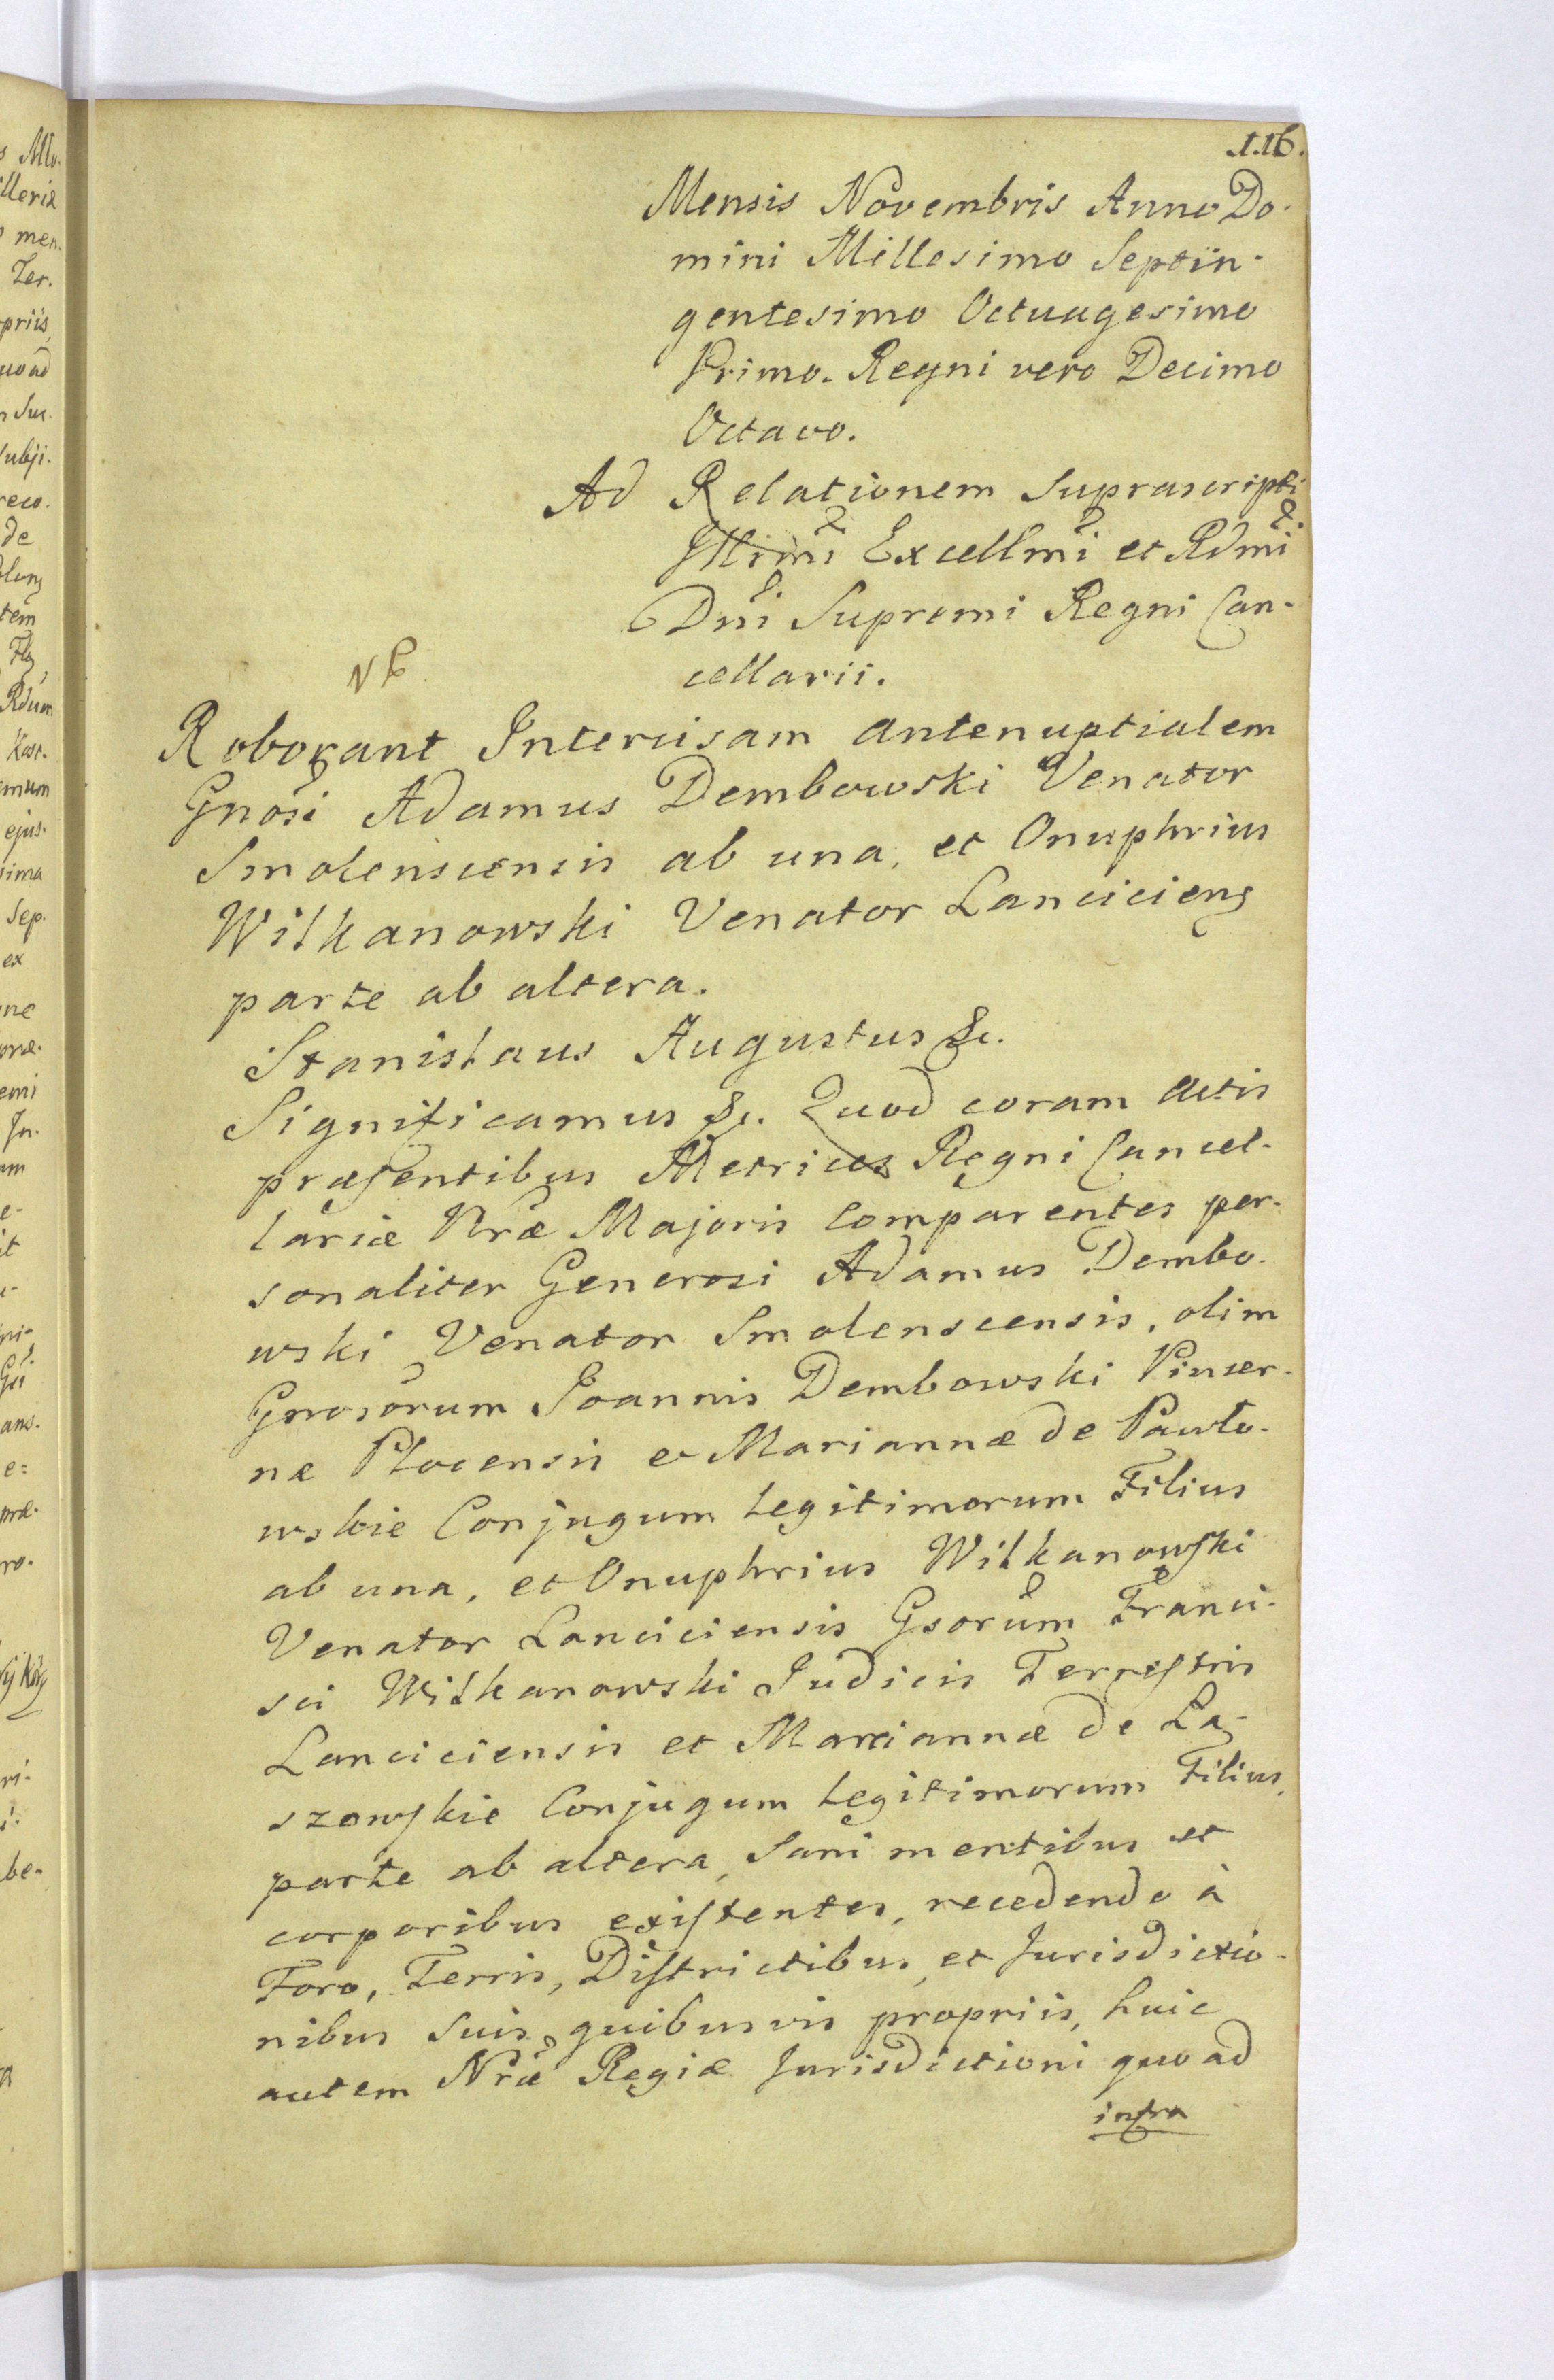 116.
Mensis Novembris Anno Do-
mini Millesimo Septin-
gentesimo Octuagesimo
Primo. Regni vero Decimo
Octavo.
Ad Relationem Suprascripti
Illrimi Excellmi et Rdmi
Dni Supremi Regni Can-
cellarii.
NB.
Roborant Intercisam antenuptialem
Gnosi Adamus Dembowski Venator
Smolenscensis ab una, et Onuphrius
Witkanowski Venator Lanciciens
parte ab altera.
Stanislaus Augustus &c.
Significamus &c. Quod coram actis
præsentibus Metrices Regni Cancel-
lariæ Nræ Majoris Comparentes per-
sonaliter Generosi Adamus Dembo-
wski Venator Smolenscensis, olim
Gnosorum Joannis Dembowski Pincer-
næ Plocensis et Mariannæ de Pawło-
wskie Conjugum legitimorum Filius
ab una, et Onuphrius Witkanowski
Venator Lanciciensis Gsorum Franci-
sci Witkanowski Judicis Terrestris
Lanciciensis et Mariannæ de La-
szewskie Conjugum legitimorum Filius,
parte ab altera, Sani mentibus et
corporibus existentes, recedendo à
Foro, Terris, Districtibus, et Jurisdictio-
nibus Suis quibusvis propriis, huic
autem Nræ Regiæ Jurisdictioni quoad
infra